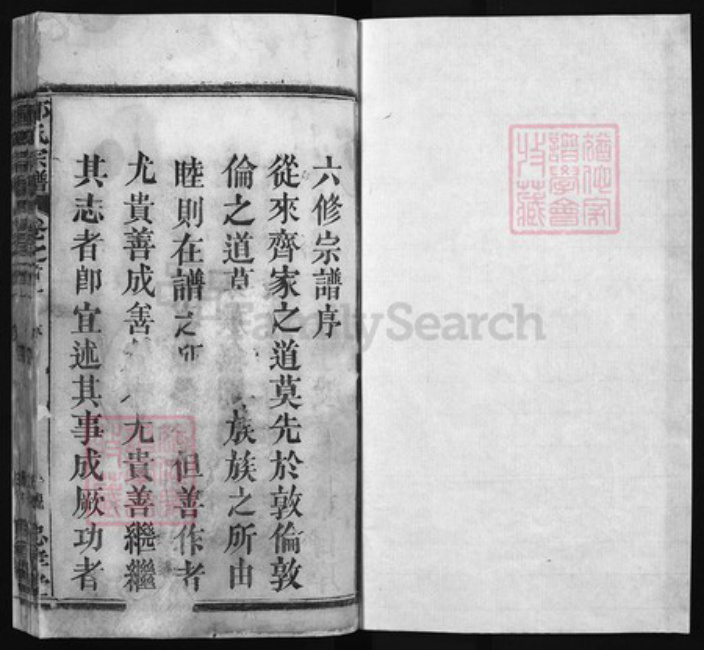 六修宗譜序
從來齊家之道莫先於敦倫敦
倫之道莫 族族之所由
睦則在譜之 但善作者
尤貴善成善 尤貴善繼繼
其志者即宜述其事成厥功者
氏宗譜 卷之首
FamilySearch